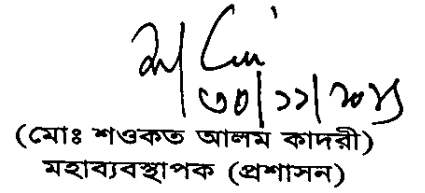 ৩০/১১/২০২১
(মোঃ শওকত আলম কাদরী)
মহাব্যবস্থাপক (প্রশাসন)